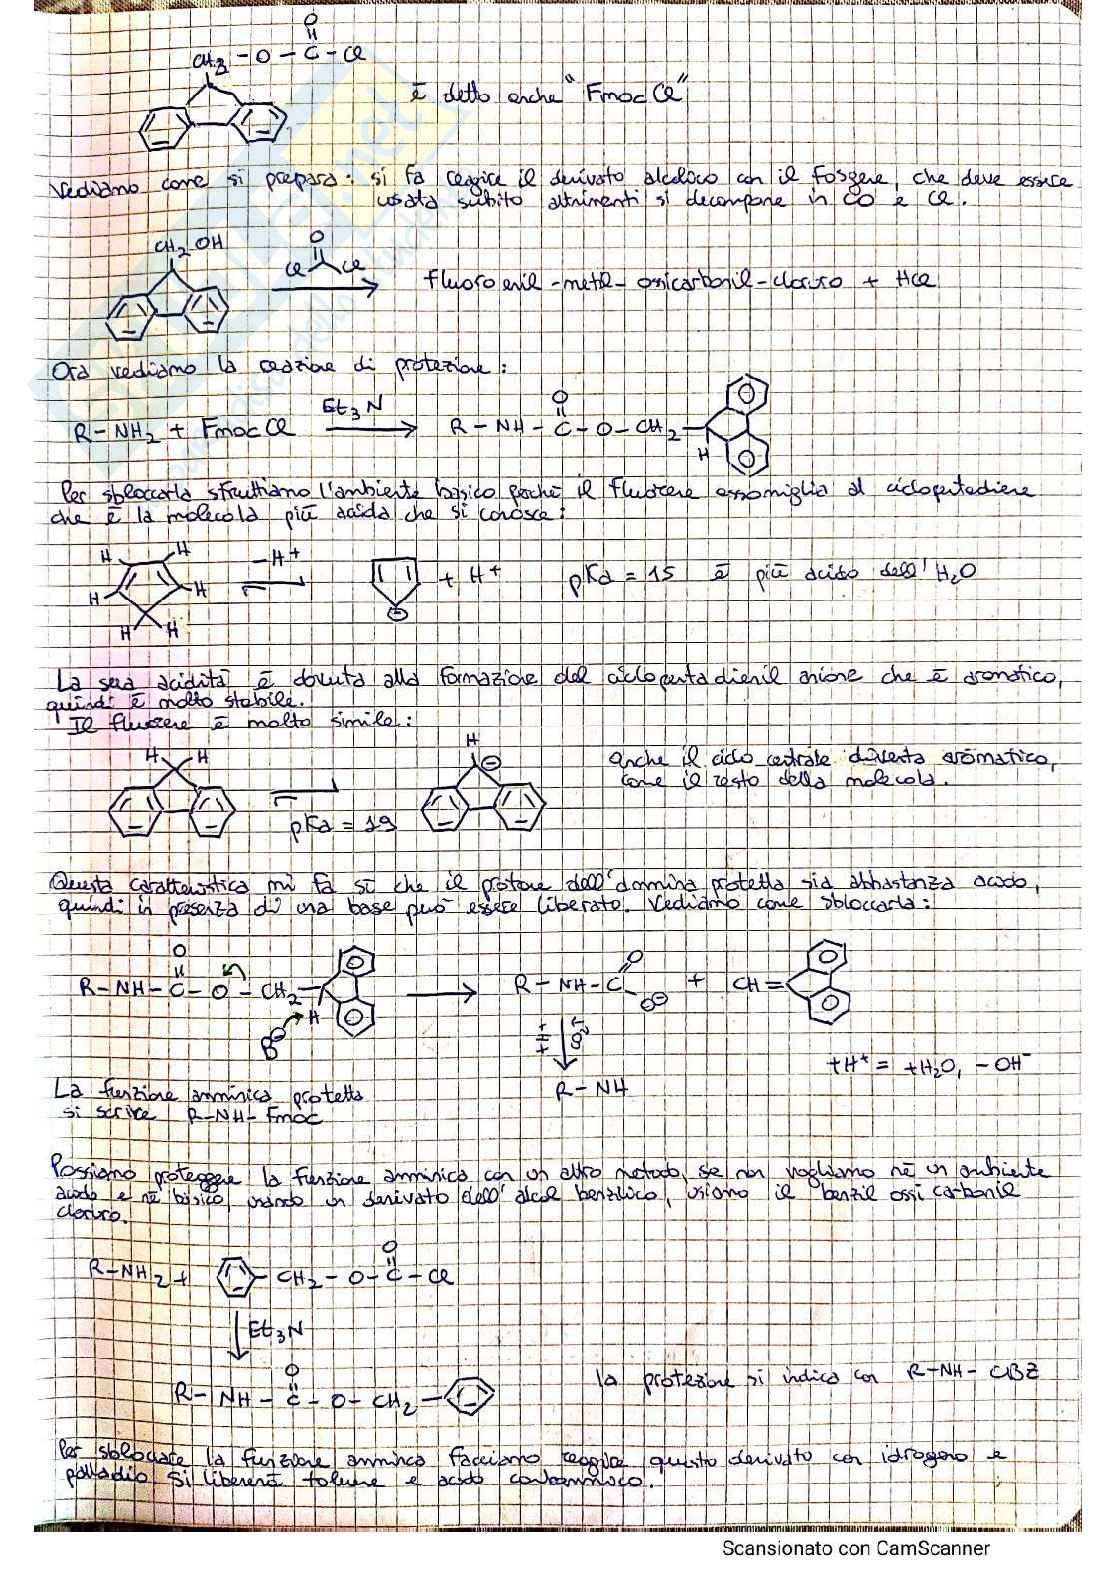 CH₂ – O – C – Cl
O
È detto anche "Fmoc Cl"
Vediamo come si prepara: si fa reagire il derivato alcolico con il fosgene, che deve essere
usata subito altrimenti si decompone in CO e Cl.
CH₂ OH
O
Cl Cl
fluoro enil - metil - ossicarbonil - cloruro + HCl
Ora vediamo la reazione di protezione:
R – NH₂ + Fmoc Cl
Et₃N
O
R – NH – C – O – CH₂ –
H
Per sbloccarla sfruttiamo l'ambiente basico perché il fluorene assomiglia al ciclopentadiene
che è la molecola più acida che si conosce:
H H
H H
H H
– H⁺
⊖
+ H⁺
pKa = 15 è più acido dell'H₂O
La sua acidità è dovuta alla formazione del ciclopentadienil anione che è aromatico,
quindi è molto stabile.
Il fluorene è molto simile:
H H
pKa = 19
H
⊖
anche il ciclo centrale diventa aromatico,
come il resto della molecola.
Questa caratteristica mi fa sì che il protone dell'ammina protetta sia abbastanza acido,
quindi in presenza di una base può essere liberato. Vediamo come sbloccarla:
O
R – NH – C – O – CH₂ –
H
B⊖
O
R – NH – C
O⊖
+ CH =
+H⁺
-CO₂
R – NH
+H⁺ = +H₂O, – OH⁻
La funzione amminica protetta
si scrive R–NH– Fmoc
Possiamo proteggere la funzione amminica con un altro metodo, se non vogliamo né un ambiente
acido e né basico, usando un derivato dell'alcol benzilico, usiamo il benzil ossi carbonil
cloruro.
R–NH₂ +
O
CH₂ – O – C – Cl
Et₃N
O
R – NH – C – O – CH₂ –
la protezione si indica con R–NH– CBZ
Per sbloccare la funzione amminica facciamo reagire questo derivato con idrogeno e
palladio. Si libererà toluene e acido carbammico.
Scansionato con CamScanner